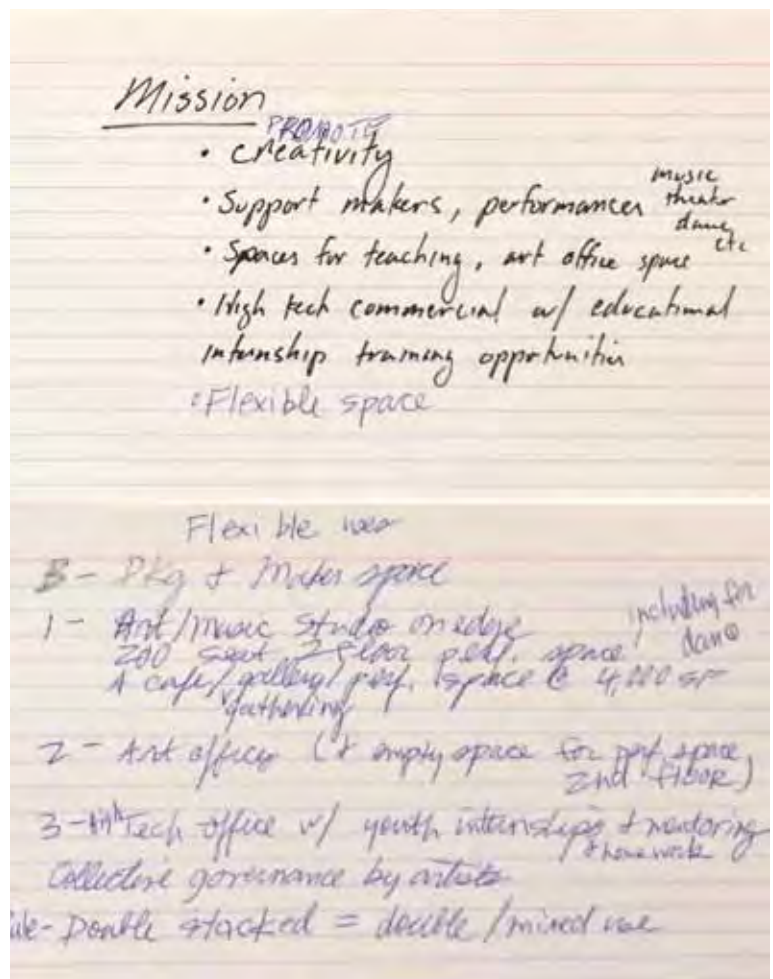 Mission
PROMOTE
• creativity
• Support makers, performances music theater dance etc
• Spaces for teaching, art office space
• High tech commercial w/ educational
internship training opportunities
• Flexible space
Flexible uses
B - Pkg + Maker space
1 - Art/music studio on edge including for dance
200 seat 2 floor perf. space
A cafe/gallery/perf. space @ 4,000 SF
gathering
2 - Art offices (+ empty space for perf. space
2nd FLOOR)
3 - High Tech office w/ youth internships + mentoring
+ homework
Collective governance by artists
Double stacked = double/mixed use